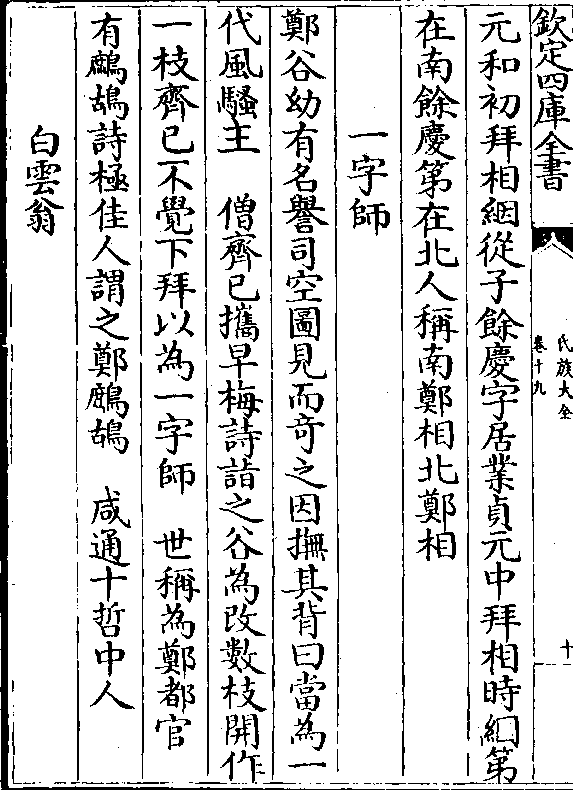 欽定四庫全書
氏族大全
卷十九
十
元和初拜相絪從子餘慶字居業貞元中拜相時絪第
在南餘慶第在北人稱南鄭相北鄭相
一字師
鄭谷幼有名譽司空圖見而竒之因撫其背曰當為一
代風騷主 僧齊已攜早梅詩詣之谷為改數枝開作
一枝齊已不覺下拜以為一字師 世稱為鄭都官
有鷓鴣詩極佳人謂之鄭鷓鴣 咸通十哲中人
白雲翁